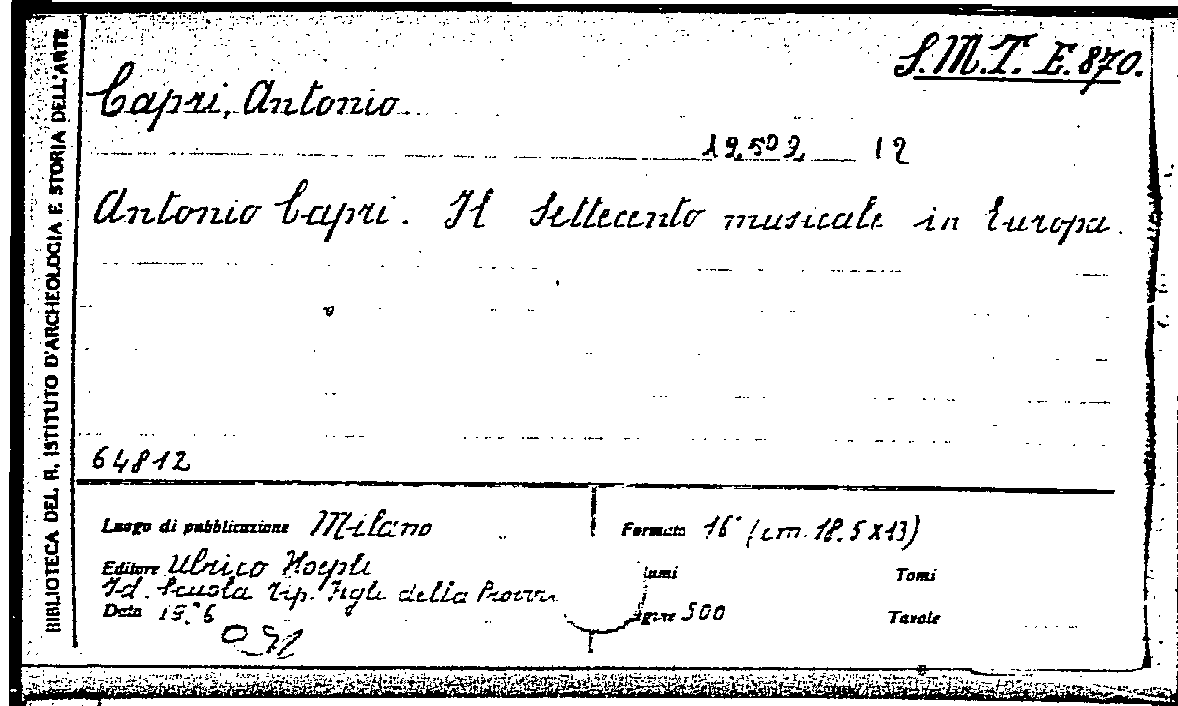 BIBLIOTECA DEL R. ISTITUTO D'ARCHEOLOGIA E STORIA DELL'ARTE
S.M.T. E. 870.
Capri, Antonio.
12
Antonio Capri. Il Settecento musicale in Europa.
64812
Luogo di pubblicazione Milano
Formato 16° (cm. 18.5 x 13)
Editore Ulrico Hoepli
lumi
Tomi
Id. Scuola Tip. Figli della
Data
500
Tavole